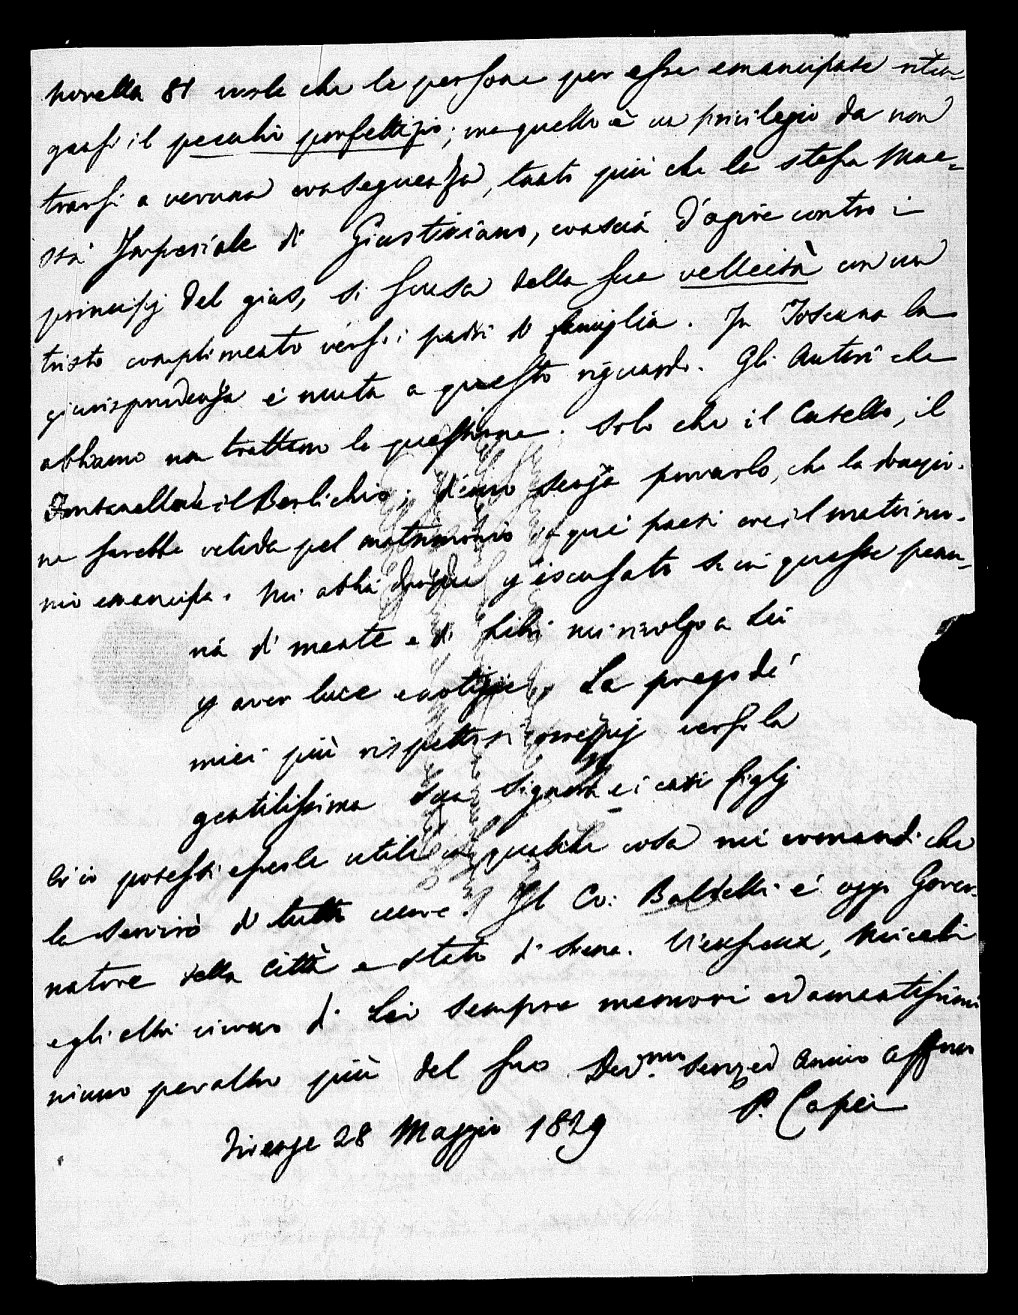 Novella 81 vuole che le persone per esse emancipate riten-
gansi il peculio profettizio; ma quello è un privilegio da non
trarsi a veruna conseguenza, tanto più che la stessa Mae-
stà Imperiale di Giustiniano, conscia d'agire contro i
principj del gius, si scusa della sua velleità con un
tristo complimento verso i padri di famiglia. In Toscana la
giurisprudenza è muta a questo riguardo. Gli Autori che
abbiamo non trattano la questione. Solo che il Casella, il
Fontanella ed il Berlichio, dicono senza provarlo, che la donazio-
ne sarebbe valida pel matrimonio in quei paesi ove il matrimo-
nio emancipa. Mi abbia dunque p iscusato se in questa penu-
ria di mente e di libri mi rivolgo a Lei
p aver luce e notizie. La prego de'
miei più rispettosi omaggj verso la
gentilissima Sua Signora e i cari figlj
Se io potessi esserle utile in qualche cosa mi comandi che
la servirò di tutto cuore. Il Cv: Baldelli è oggi Gover-
natore della Città e Stato di Siena. Vieusseux, Micali
e gli altri vivono di Lei sempre memori ed amantissimi
niuno peraltro più del suo Dev.mo Serv ed Amico Affmo
P. Capei
Firenze 28 Maggio 1829